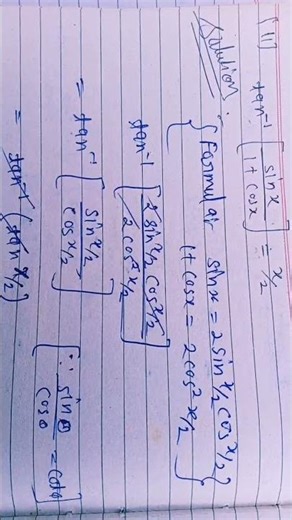 (11) tan⁻¹ [ sinx / 1+cosx ] = x/2
Solution:
{ Formular sinx = 2sin x/2 cos x/2
1+cosx = 2cos² x/2 }
tan⁻¹ [ 2 sin x/2 cos x/2 / 2 cos² x/2 ]
= tan⁻¹ [ sin x/2 / cos x/2 ] [ ∵ sinθ / cosθ =
= tan⁻¹ (tan x/2)